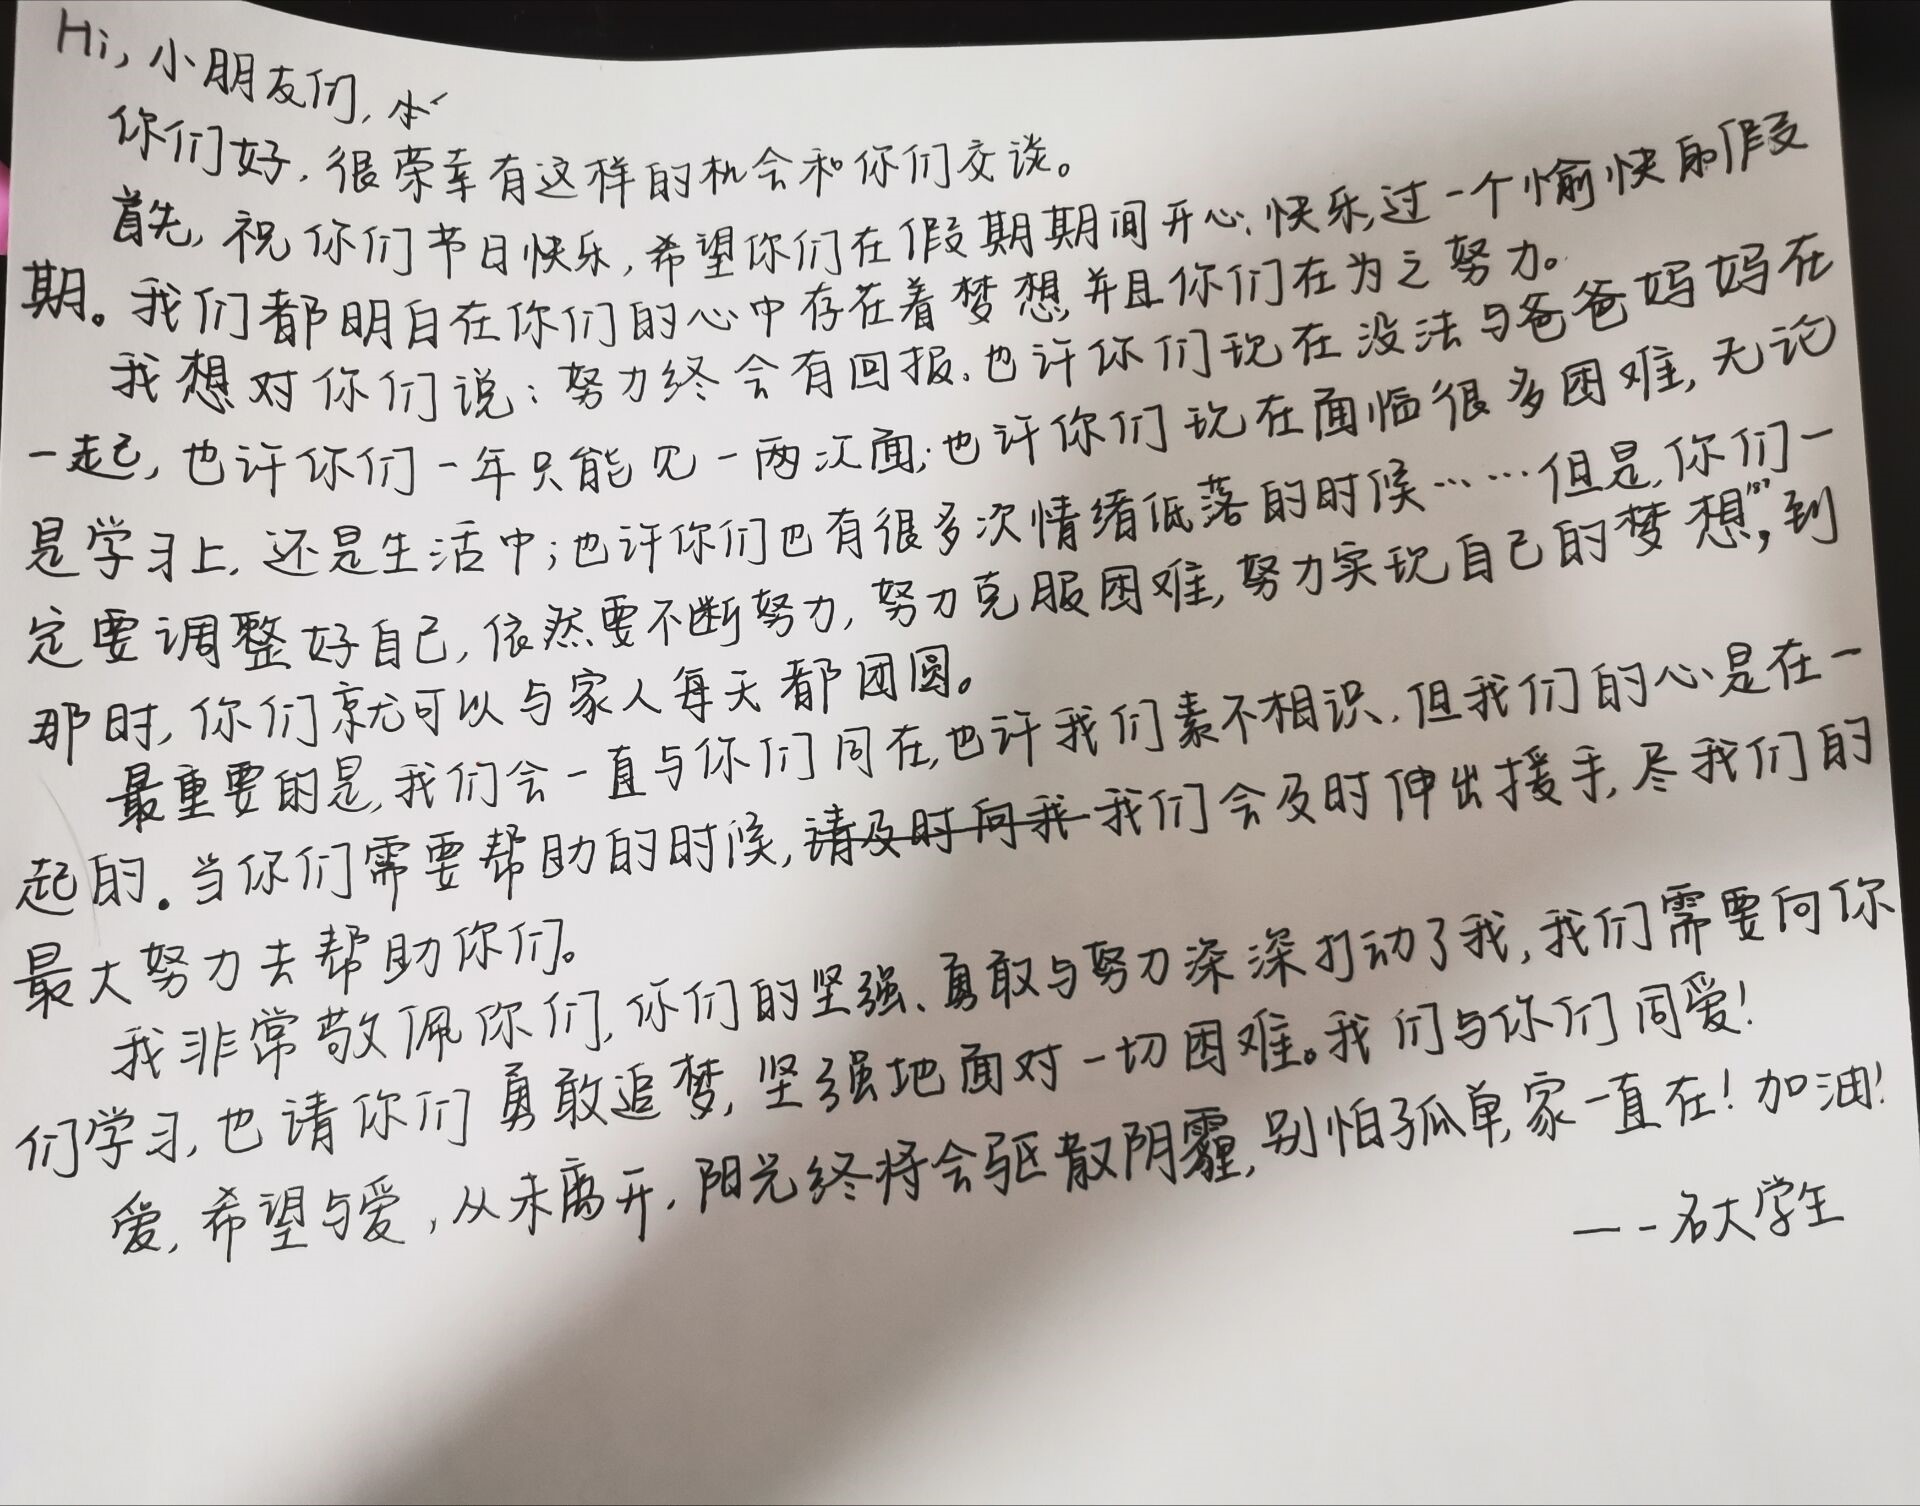 Hi，小朋友们，
你们好，很荣幸有这样的机会和你们交谈。
首先，祝你们节日快乐，希望你们在假期期间开心、快乐，过一个愉快的假
期。我们都明白在你们的心中存在着梦想，并且你们在为之努力。
我想对你们说：努力终会有回报，也许你们现在没法与爸爸妈妈在
一起，也许你们一年只能见一两次面；也许你们现在面临很多困难，无论
是学习上，还是生活中；也许你们也有很多次情绪低落的时候……但是，你们一
定要调整好自己，依然要不断努力，努力克服困难，努力实现自己的梦想，到
那时，你们就可以与家人每天都团圆。
最重要的是，我们会一直与你们同在，也许我们素不相识，但我们的心是在一
起的。当你们需要帮助的时候，请及时向我我们会及时伸出援手，尽我们的
最大努力去帮助你们。
我非常敬佩你们，你们的坚强、勇敢与努力深深打动了我，我们需要向你
们学习，也请你们勇敢追梦，坚强地面对一切困难。我们与你们同爱！
爱，希望与爱，从未离开，阳光终将会驱散阴霾，别怕孤单，家一直在！加油！
——名大学生